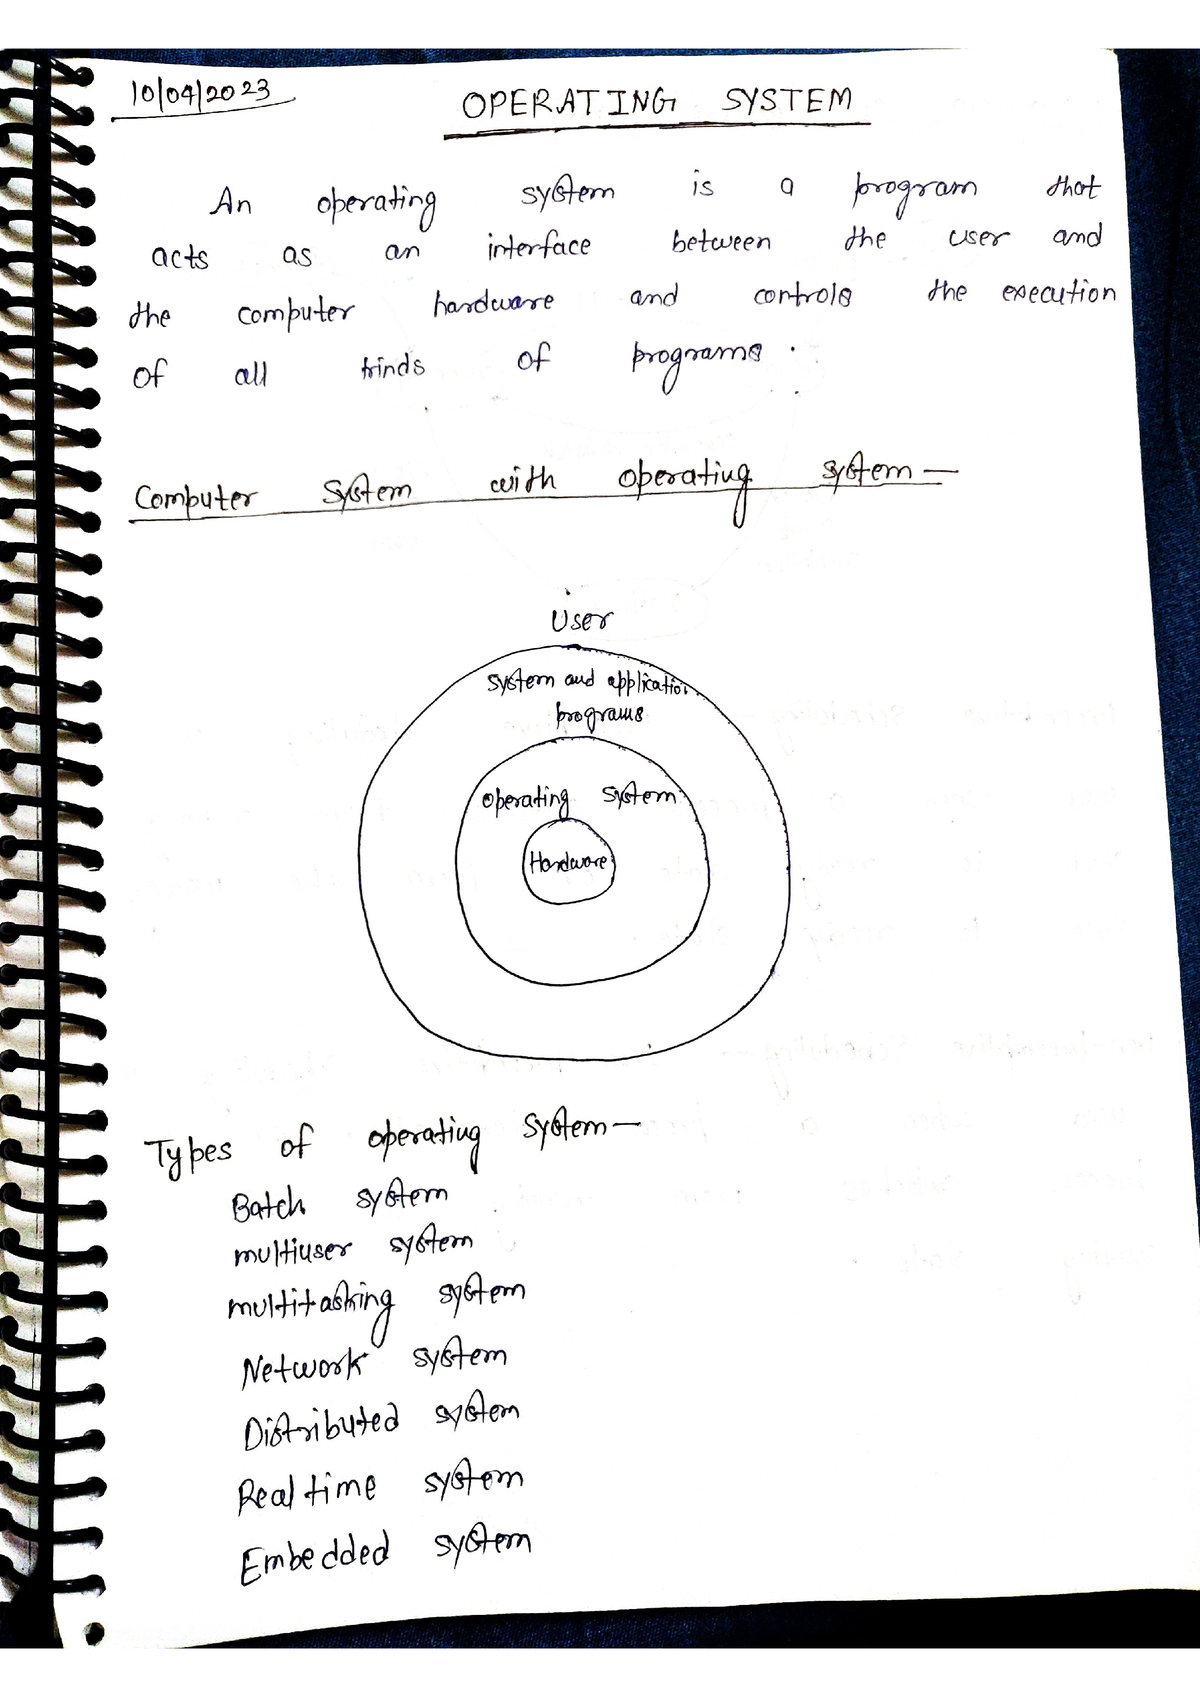 10/04/2023
OPERATING SYSTEM
An operating system is a program that
acts as an interface between the user and
the computer hardware and controls the execution
of all kinds of programs.
Computer System with operating system—
User
System and application
programs
Operating System
Hardware
Types of operating System—
Batch system
multiuser system
multitasking system
Network system
Distributed system
Real time system
Embedded system